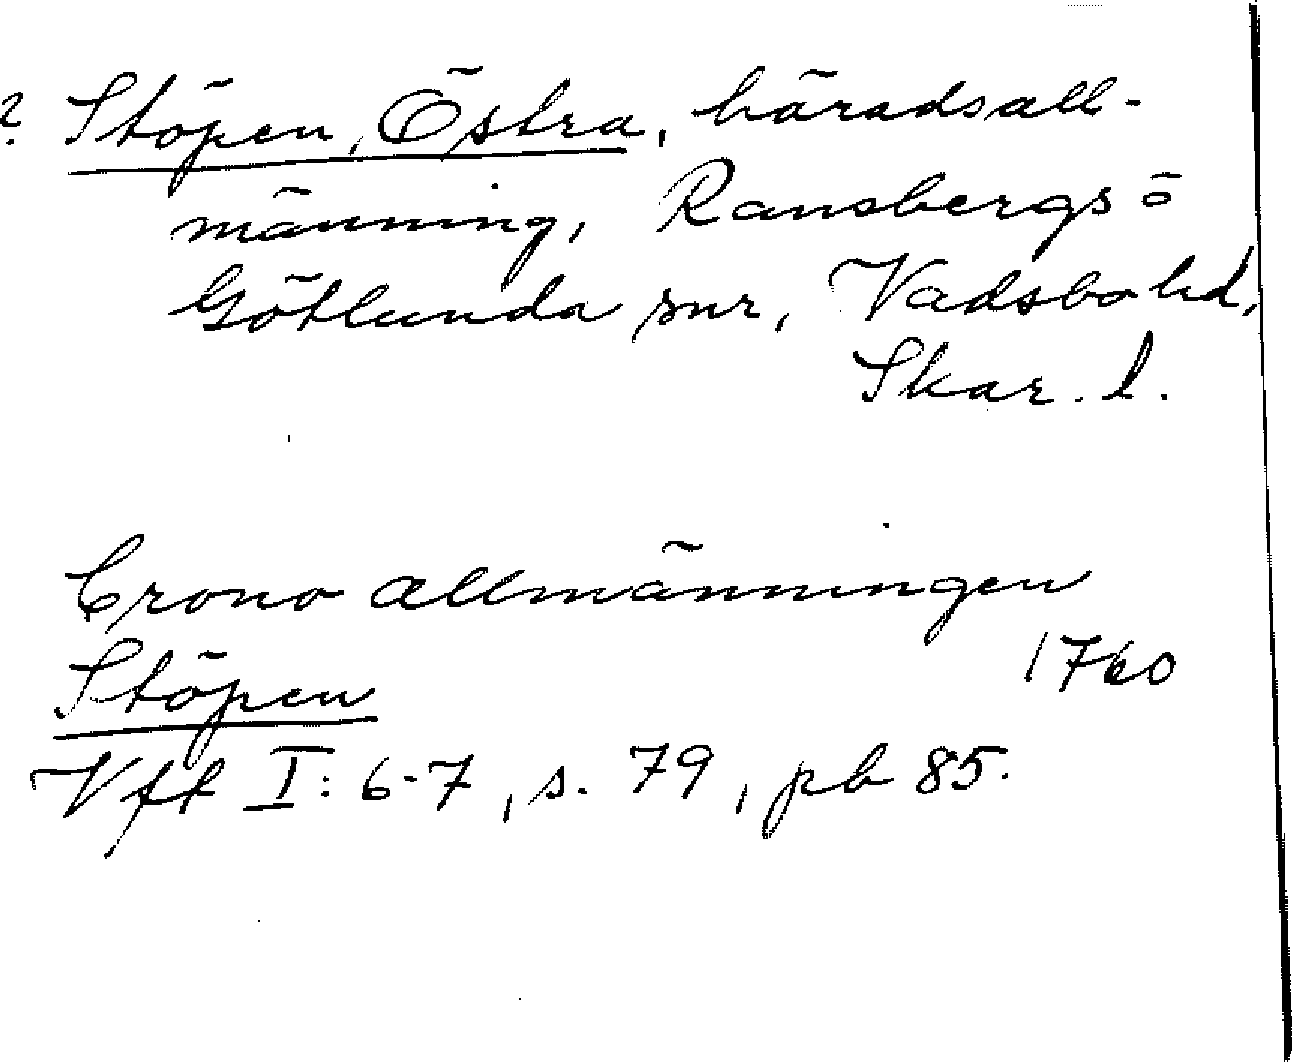 ? Stöpen, Östra, häradsall-
männing, Ransbergs o
Götlunda snr, Vadsbo hd,
Skar. l.
Crono allmänningen
Stöpen 1760
Vft I: 6-7, s. 79, pb 85.